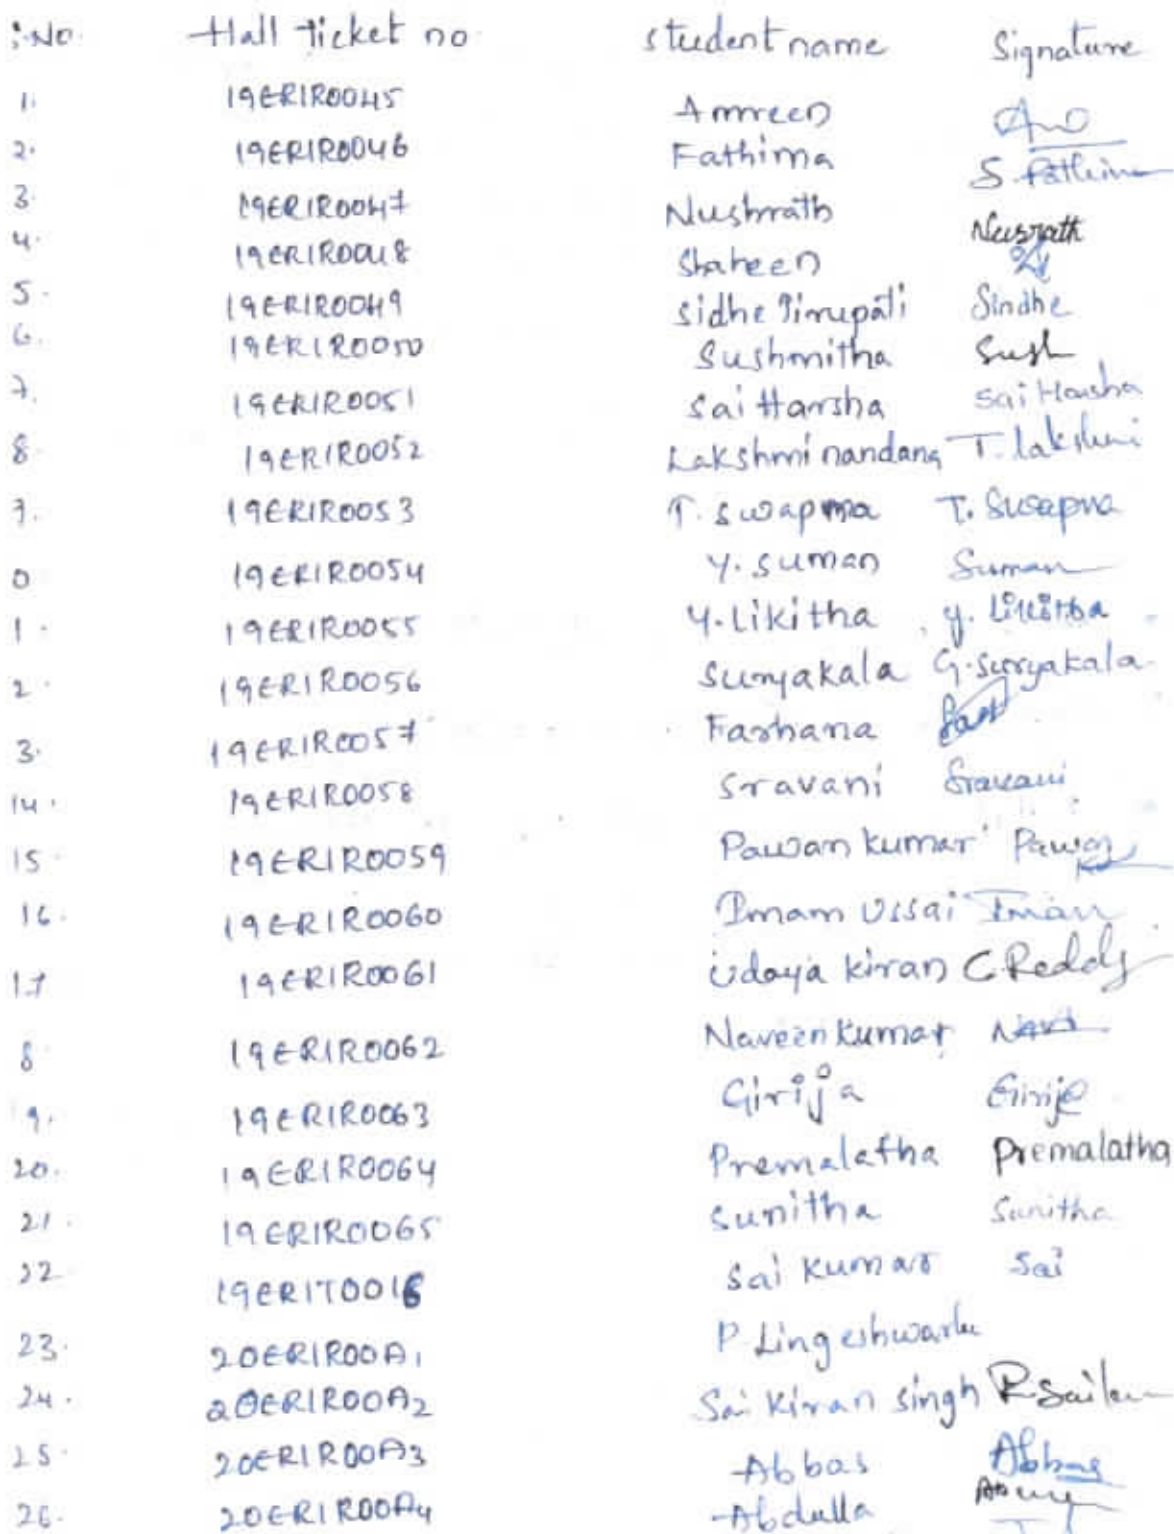 S.No. Hall Ticket no student name Signature
1. 19ER1R0045 Amreen
2. 19ER1R0046 Fathima S. Fathima
3. 19ER1R0047 Nushrath Nusrath
4. 19ER1R0048 Shaheen
5. 19ER1R0049 sidhe Tirupati Sindhe
6. 19ER1R0050 Sushmitha Sush
7. 19ER1R0051 Sai Harsha Sai Harsha
8. 19ER1R0052 Lakshmi nandana T. lakshmi
9. 19ER1R0053 T. swapna T. Swapna
0 19ER1R0054 Y. suman Suman
1. 19ER1R0055 Y. Likitha y. Likitha
2. 19ER1R0056 Suryakala G. suryakala
3. 19ER1R0057 Farhana
14. 19ER1R0058 Sravani Sravani
15 19ER1R0059 Pawan kumar Pawan
16. 19ER1R0060 Imam Ussai Imam
17 19ER1R0061 Udaya kiran C. Reddy
8 19ER1R0062 Naveen kumar
19. 19ER1R0063 Girija Girija
20. 19ER1R0064 Premalatha Premalatha
21. 19ER1R0065 Sunitha Sunitha
22 19ER1T0016 Sai Kumar Sai
23. 20ER1R00A1 P. Lingeshwarlu
24. 20ER1R00A2 Sai Kiran singh
25. 20ER1R00A3 Abbas Abbas
26. 20ER1R00A4 Abdulla